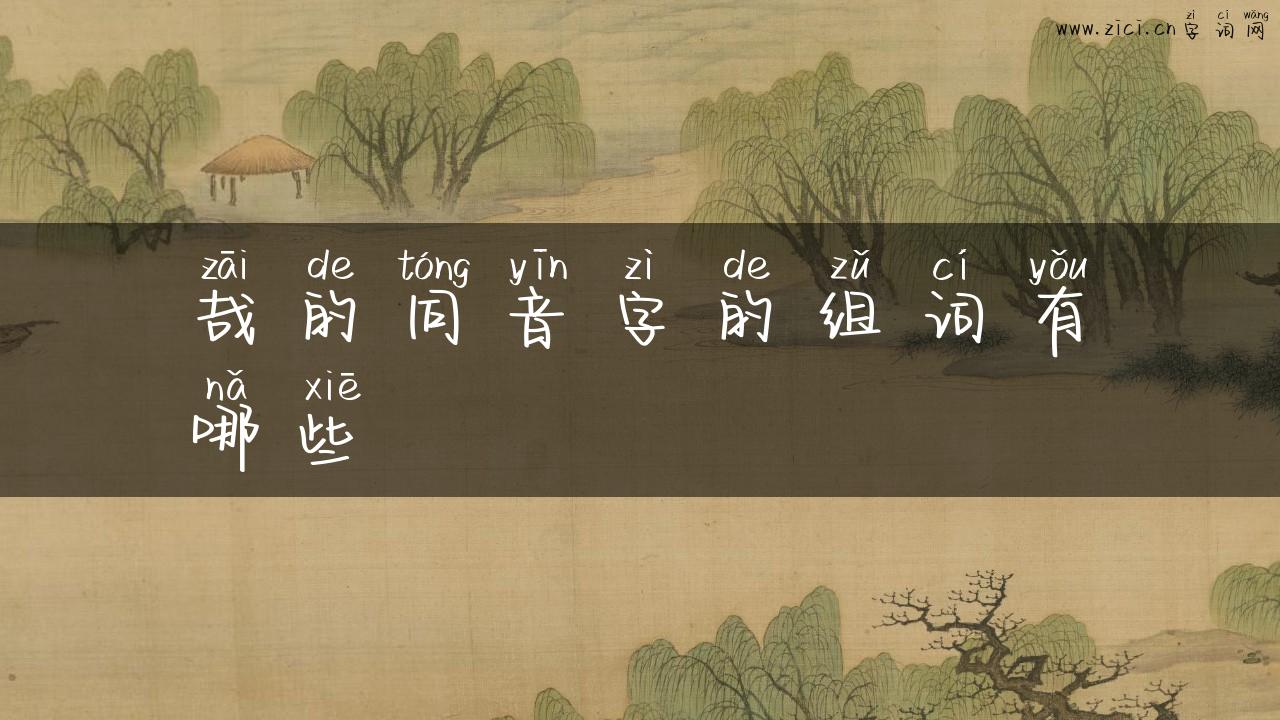 zì cí wǎng
www.zici.cn 字 词 网
zāi de tóng yīn zì de zǔ cí yǒu
哉 的 同 音 字 的 组 词 有
nǎ xiē
哪 些